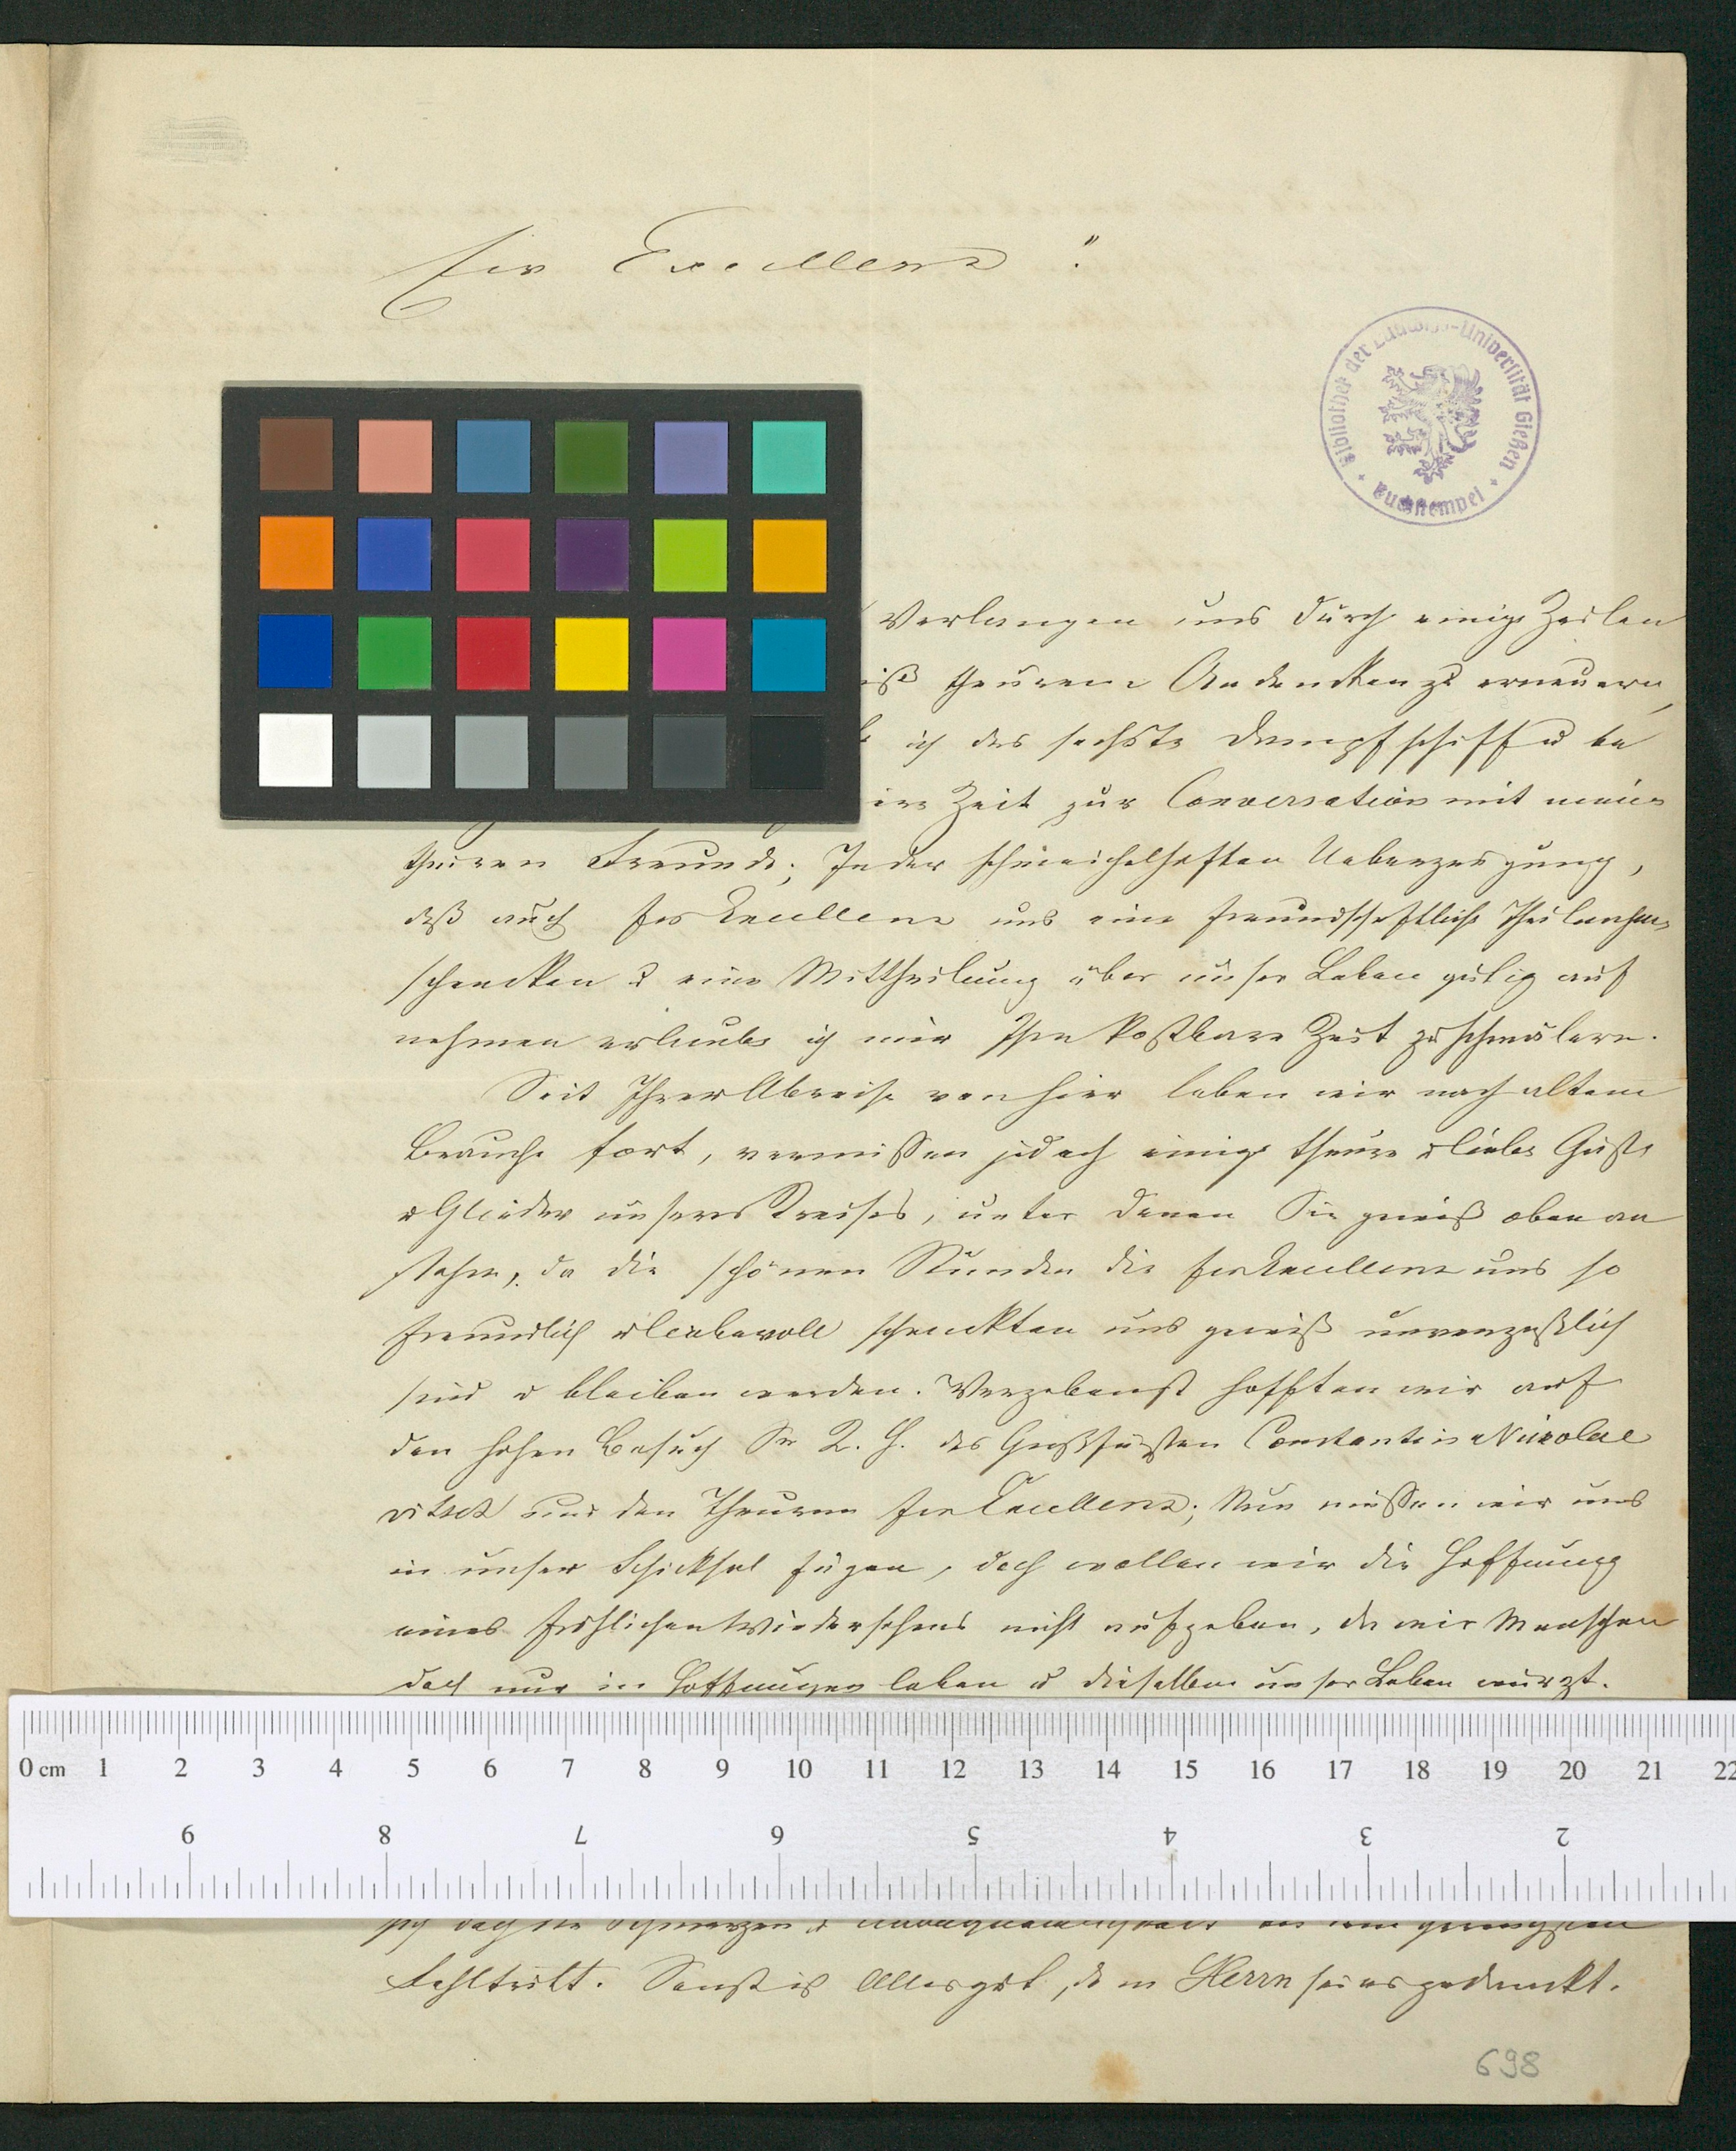 Ew Excellenz!
Bibliothek der Ludwigs-Universität Gießen
Buchstempel
Verlangen uns durch einige Zeilen
theurem Andencken zu erneuern,
ich das sechste Dampfschiff u be
Zeit zur Conversation mit mein
theuren Freunde; In der schmeichelhaften Ueberzeugung,
daß auch Ew Excellenz uns eine freundschaftliche Theilnahme
schencken u eine Mittheilung über unser Leben gütig auf
nehmen erlaube ich mir Ihre kostbare Zeit zu schmälern.
Seit Ihrer Abreise von hier leben wir nach altem
Brauche fort, vermissen jedoch einige theure u liebe Gäste
u Glieder unsers Kreises, unter denen Sie gewiß oben an
stehen, da die schönen Stunden die Ew Excellenz uns so
freundlich u liebevoll schenckten uns gewiß unvergeßlich
sind u bleiben werden. Vergebens hofften wir auf
den hohen Besuch Sr K. H. des Großfürsten Constantin Nicolae
vitsch und den Theuren Ew Excellenz; Nun müssen wir uns
in unser Schicksal fügen, doch wollen wir die Hoffnung
eines fröhlichen Wiedersehens nicht aufgeben, da wir Menschen
doch nur in Hoffnungen leben u dieselben unser Leben würzt.
0 cm 1 2 3 4 5 6 7 8 9 10 11 12 13 14 15 16 17 18 19 20 21 22
9 8 7 6 5 4 3 2
Fehltritt. Sonst ist Alles gut, dem Herrn sei es gedanckt.
698